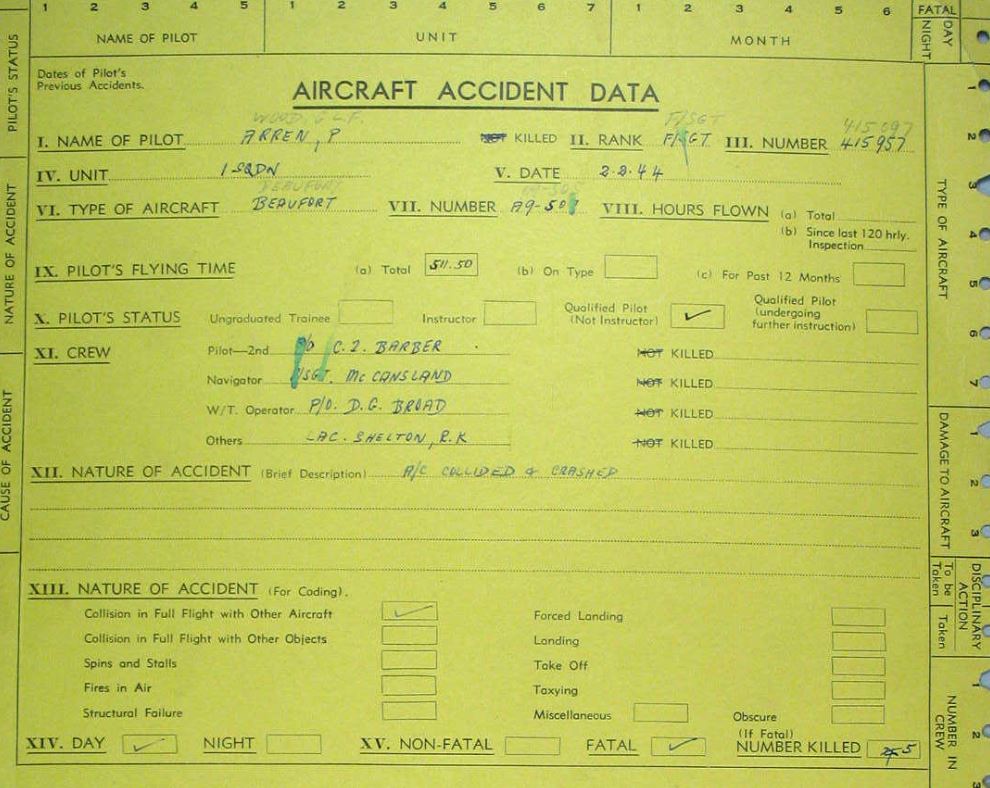 1 2 3 4 5 1 2 3 4 5 6 7 1 2 3 4 5 6 FATAL
NAME OF PILOT UNIT MONTH NIGHT DAY
PILOT'S STATUS
NATURE OF ACCIDENT
CAUSE OF ACCIDENT
Dates of Pilot's
Previous Accidents.
AIRCRAFT ACCIDENT DATA
WOOD, G L F. F/SGT 415097
I. NAME OF PILOT ARREN, P NOT KILLED II. RANK F/SGT III. NUMBER 415957
IV. UNIT 1 SQDN V. DATE 2.2.44
BEAUFORT
VI. TYPE OF AIRCRAFT BEAUFORT VII. NUMBER A9-507 VIII. HOURS FLOWN (a) Total
(b) Since last 120 hrly.
Inspection
IX. PILOT'S FLYING TIME (a) Total 511.50 (b) On Type (c) For Past 12 Months
X. PILOT'S STATUS Ungraduated Trainee Instructor Qualified Pilot
(Not Instructor) ✓ Qualified Pilot
(undergoing
further instruction)
XI. CREW Pilot—2nd C.J. BARBER NOT KILLED
Navigator SGT. McCANSLAND NOT KILLED
W/T. Operator P/O. D.G. BROAD NOT KILLED
Others LAC. SHELTON, R.K NOT KILLED
XII. NATURE OF ACCIDENT (Brief Description) A/C COLLIDED & CRASHED
XIII. NATURE OF ACCIDENT (For Coding).
Collision in Full Flight with Other Aircraft ✓ Forced Landing
Collision in Full Flight with Other Objects Landing
Spins and Stalls Take Off
Fires in Air Taxying
Structural Failure Miscellaneous Obscure
XIV. DAY ✓ NIGHT XV. NON-FATAL FATAL ✓ (If Fatal)
NUMBER KILLED 5
1
2
3
4
5
6
7
TYPE OF AIRCRAFT
1
2
3
DAMAGE TO AIRCRAFT
DISCIPLINARY
ACTION
To be
Taken
Taken
1
2
3
NUMBER IN
CREW